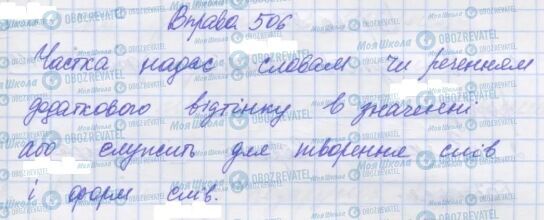 Вправа 506
Частка надає словам чи реченням
додаткового відтінку в значенні
або служить для творення слів
і форм слів.